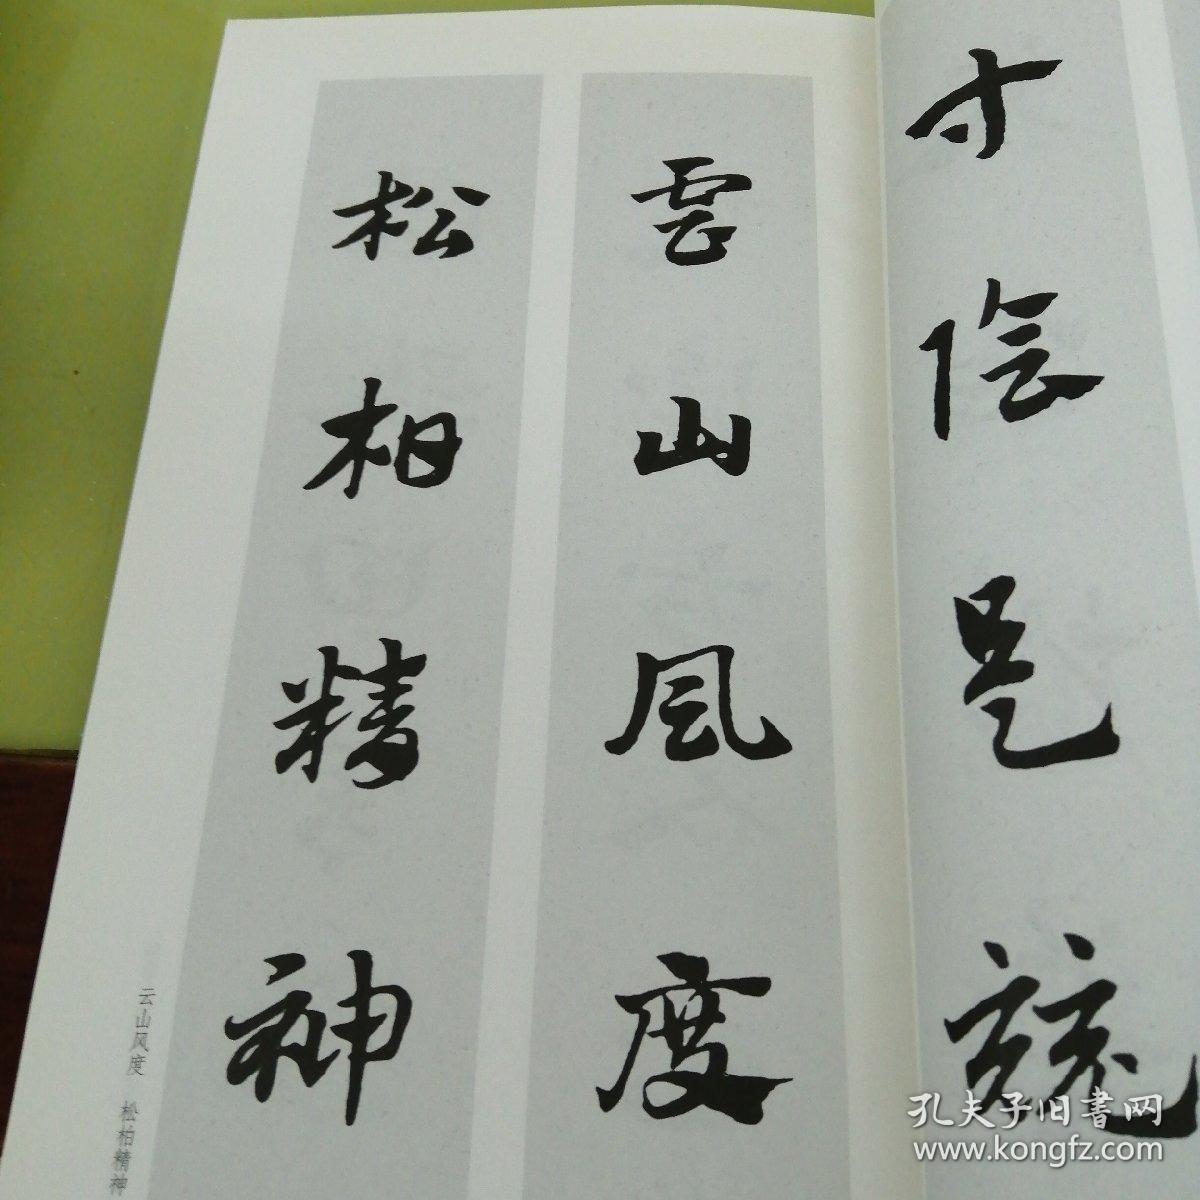 寸陰是競
雲山風度
松柏精神
云山风度 松柏精神
孔夫子旧书网
www.kongfz.com